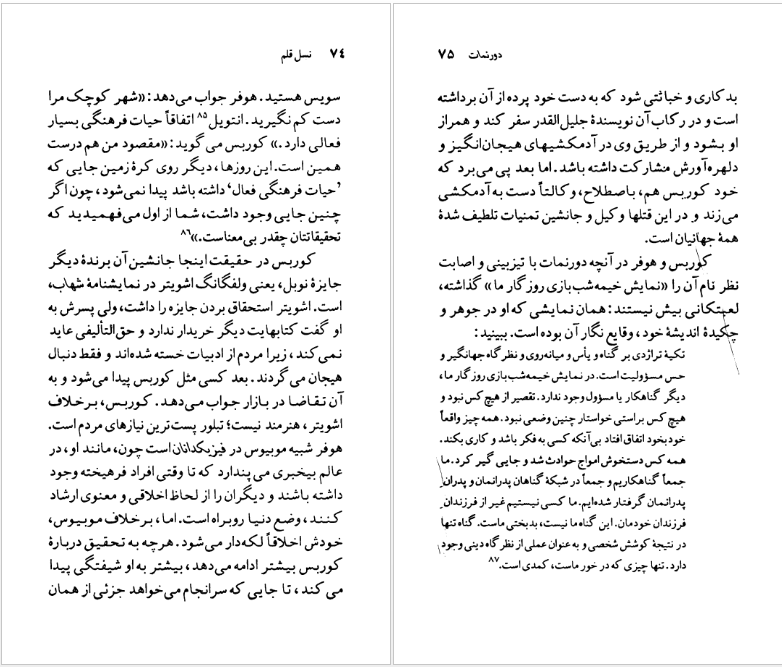 ۷۴ نسل قلم
سویس هستید. هوفر جواب می‌دهد: «شهر کوچک مرا
دست کم نگیرید. انتویل۸۵ اتفاقاً حیات فرهنگی بسیار
فعالی دارد.» کوربس می گوید: «مقصود من هم درست
همین است. این روزها، دیگر روی کرهٔ زمین جایی که
'حیات فرهنگی فعال' داشته باشد پیدا نمی‌شود، چون اگر
چنین جایی وجود داشت، شما از اول می‌فهمیدید که
تحقیقاتتان چقدر بی‌معناست.»۸۶
کوربس در حقیقت اینجا جانشین آن برندهٔ دیگر
جایزهٔ نوبل، یعنی ولفگانگ اشویتر در نمایشنامهٔ شهاب،
است. اشویتر استحقاق بردن جایزه را داشت، ولی پسرش به
او گفت کتابهایت دیگر خریدار ندارد و حق‌التألیفی عاید
نمی‌کند، زیرا مردم از ادبیات خسته شده‌اند و فقط دنبال
هیجان می‌گردند. بعد کسی مثل کوربس پیدا می‌شود و به
آن تقاضا در بازار جواب می‌دهد. کوربس، برخلاف
اشویتر، هنرمند نیست؛ تبلور پست‌ترین نیازهای مردم است.
هوفر شبیه موبیوس در فیزیکدانان است چون، مانند او، در
عالم بیخبری می‌پندارد که تا وقتی افراد فرهیخته وجود
داشته باشند و دیگران را از لحاظ اخلاقی و معنوی ارشاد
کنند، وضع دنیا روبراه است. اما، برخلاف موبیوس،
خودش اخلاقاً لکه‌دار می‌شود. هرچه به تحقیق دربارهٔ
کوربس بیشتر ادامه می‌دهد، بیشتر به او شیفتگی پیدا
می کند، تا جایی که سرانجام می‌خواهد جزئی از همان
دورنمات ۷۵
بدکاری و خباثتی شود که به دست خود پرده از آن برداشته
است و در رکاب آن نویسندهٔ جلیل‌القدر سفر کند و همراز
او بشود و از طریق وی در آدمکشیهای هیجان‌انگیز و
دلهره‌آورش مشارکت داشته باشد. اما بعد پی می‌برد که
خود کوربس هم، باصطلاح، وکالتاً دست به آدمکشی
می‌زند و در این قتلها وکیل و جانشین تمنیات تلطیف شدهٔ
همهٔ جهانیان است.
کوربس و هوفر در آنچه دورنمات با تیزبینی و اصابت
نظر نام آن را «نمایش خیمه‌شب‌بازی روزگار ما» گذاشته،
لعبتکانی بیش نیستند: همان نمایشی که او در جوهر و
چکیدهٔ اندیشهٔ خود، وقایع نگار آن بوده است. ببینید:
تکیهٔ تراژدی بر گناه و یأس و میانه‌روی و نظرگاه جهانگیر و
حس مسؤولیت است. در نمایش خیمه‌شب‌بازی روزگار ما،
دیگر گناهکار یا مسؤول وجود ندارد. تقصیر از هیچ کس نبود و
هیچ کس براستی خواستار چنین وضعی نبود. همه چیز واقعاً
خودبخود اتفاق افتاد بی‌آنکه کسی به فکر باشد و کاری بکند.
همه کس دستخوش امواج حوادث شد و جایی گیر کرد. ما
جمعاً گناهکاریم و جمعاً در شبکهٔ گناهان پدرانمان و پدران
پدرانمان گرفتار شده‌ایم. ما کسی نیستیم غیر از فرزندان
فرزندان خودمان. این گناه ما نیست، بدبختی ماست. گناه تنها
در نتیجهٔ کوشش شخصی و به عنوان عملی از نظرگاه دینی وجود
دارد. تنها چیزی که در خور ماست، کمدی است.۸۷